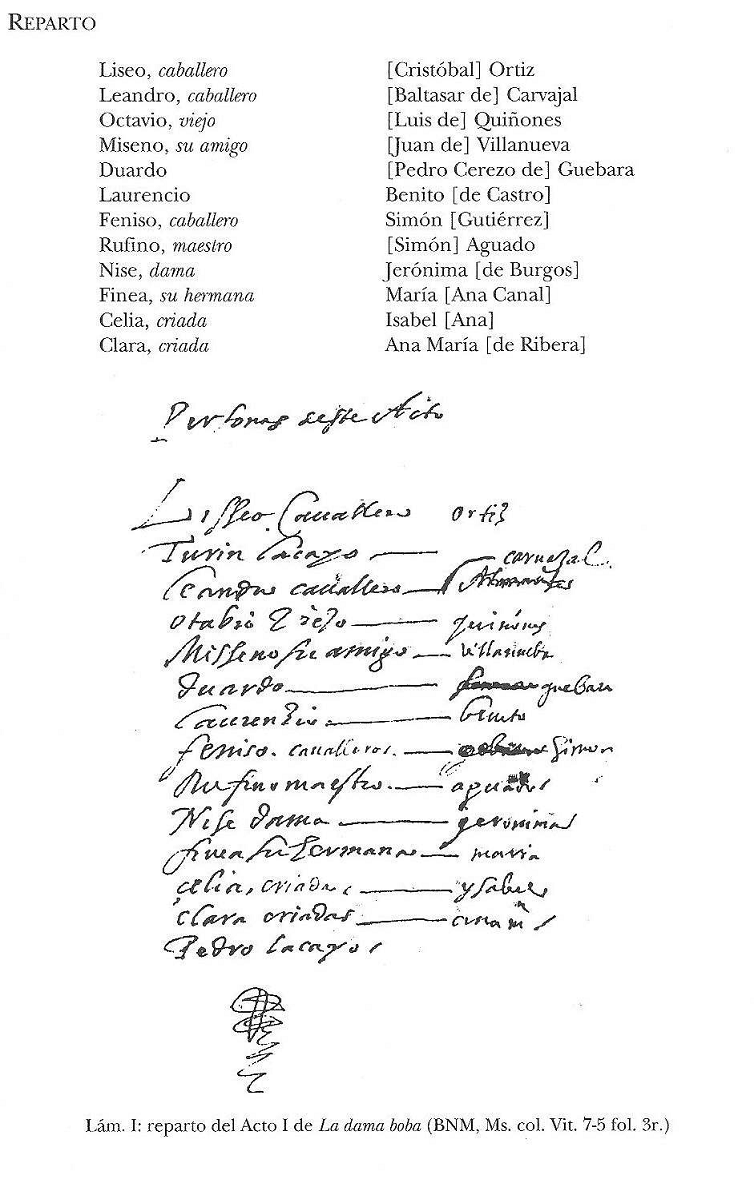 REPARTO
Liseo, caballero [Cristóbal] Ortiz
Leandro, caballero [Baltasar de] Carvajal
Octavio, viejo [Luis de] Quiñones
Miseno, su amigo [Juan de] Villanueva
Duardo [Pedro Cerezo de] Guebara
Laurencio Benito [de Castro]
Feniso, caballero Simón [Gutiérrez]
Rufino, maestro [Simón] Aguado
Nise, dama Jerónima [de Burgos]
Finea, su hermana María [Ana Canal]
Celia, criada Isabel [Ana]
Clara, criada Ana María [de Ribera]
Personas deste Acto
Lisseo Cauallero ortiz
Turin lacayo
Leandro cauallero caruajal
otabio viejo quinones
Misseno su amigo villanueba
duardo guebara
laurenzio benito
feniso. caualleros. simon
Rufino maestro. aguado
Nise dama geronima
finea su hermana maria
celia, criada ysabel
clara criadas ana mª
Pedro lacayo
Lám. I: reparto del Acto I de La dama boba (BNM, Ms. col. Vit. 7-5 fol. 3r.)